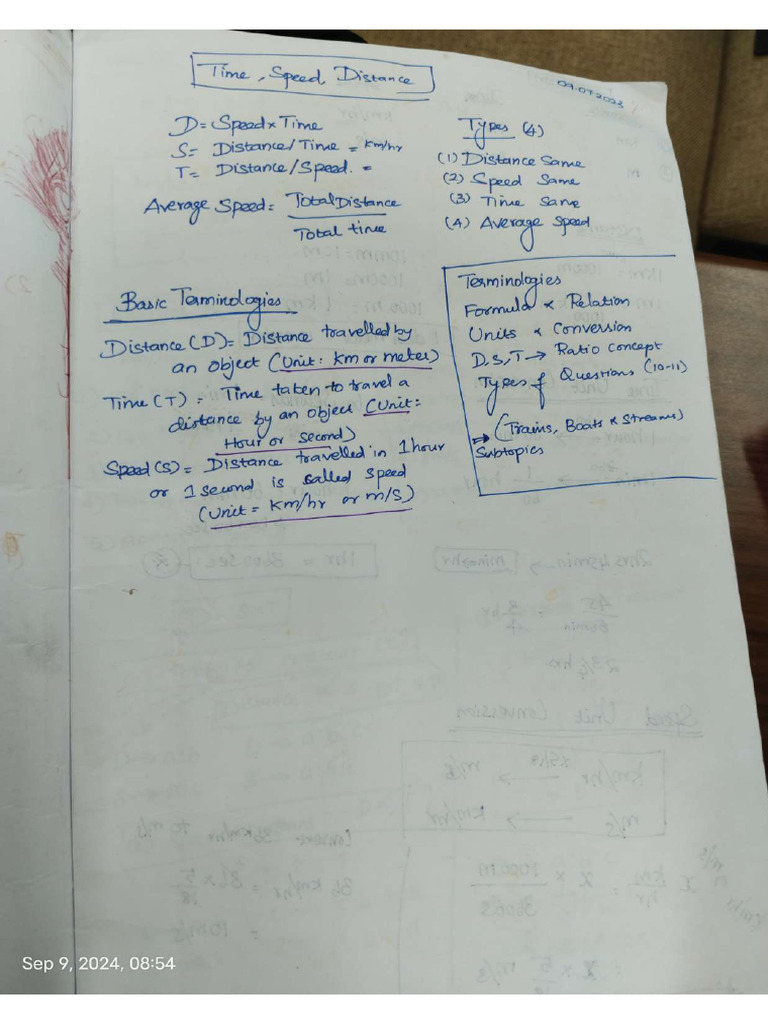 Time, Speed, Distance
09.07.2023
D = Speed × Time
S = Distance/Time = km/hr
T = Distance/Speed. =
Average Speed = Total Distance
Total time
Types (4)
(1) Distance Same
(2) Speed Same
(3) Time Same
(4) Average Speed
Basic Terminologies
Distance (D) = Distance travelled by
an object (Unit: km or meter)
Time (T) = Time taken to travel a
distance by an object (Unit:
Hour or second)
Speed (S) = Distance travelled in 1 hour
or 1 second is called speed
(Unit = km/hr or m/s)
Terminologies
Formula & Relation
Units & Conversion
D, S, T → Ratio concept
Types of Questions (10-11)
(Trains, Boats & Streams)
Subtopics
Sep 9, 2024, 08:54